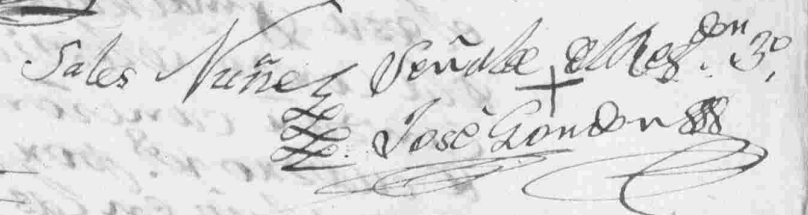 Sales Nuñez Señal + del Reg.don 3.º
José Gondon